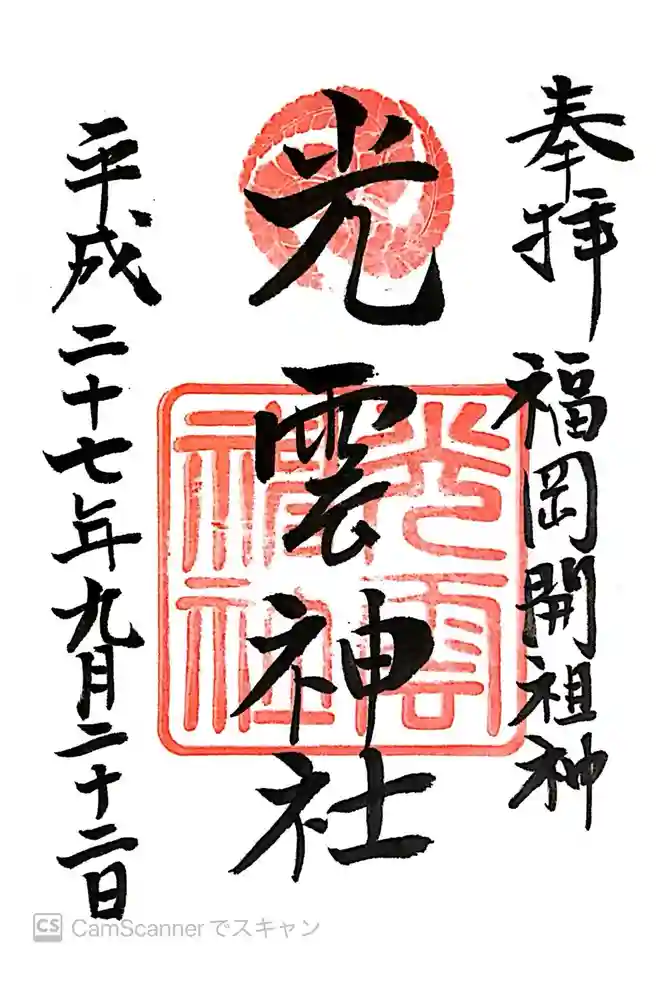 奉拝
福岡開祖神
光雲神社
光雲神社
平成二十七年九月二十二日
CS CamScannerでスキャン